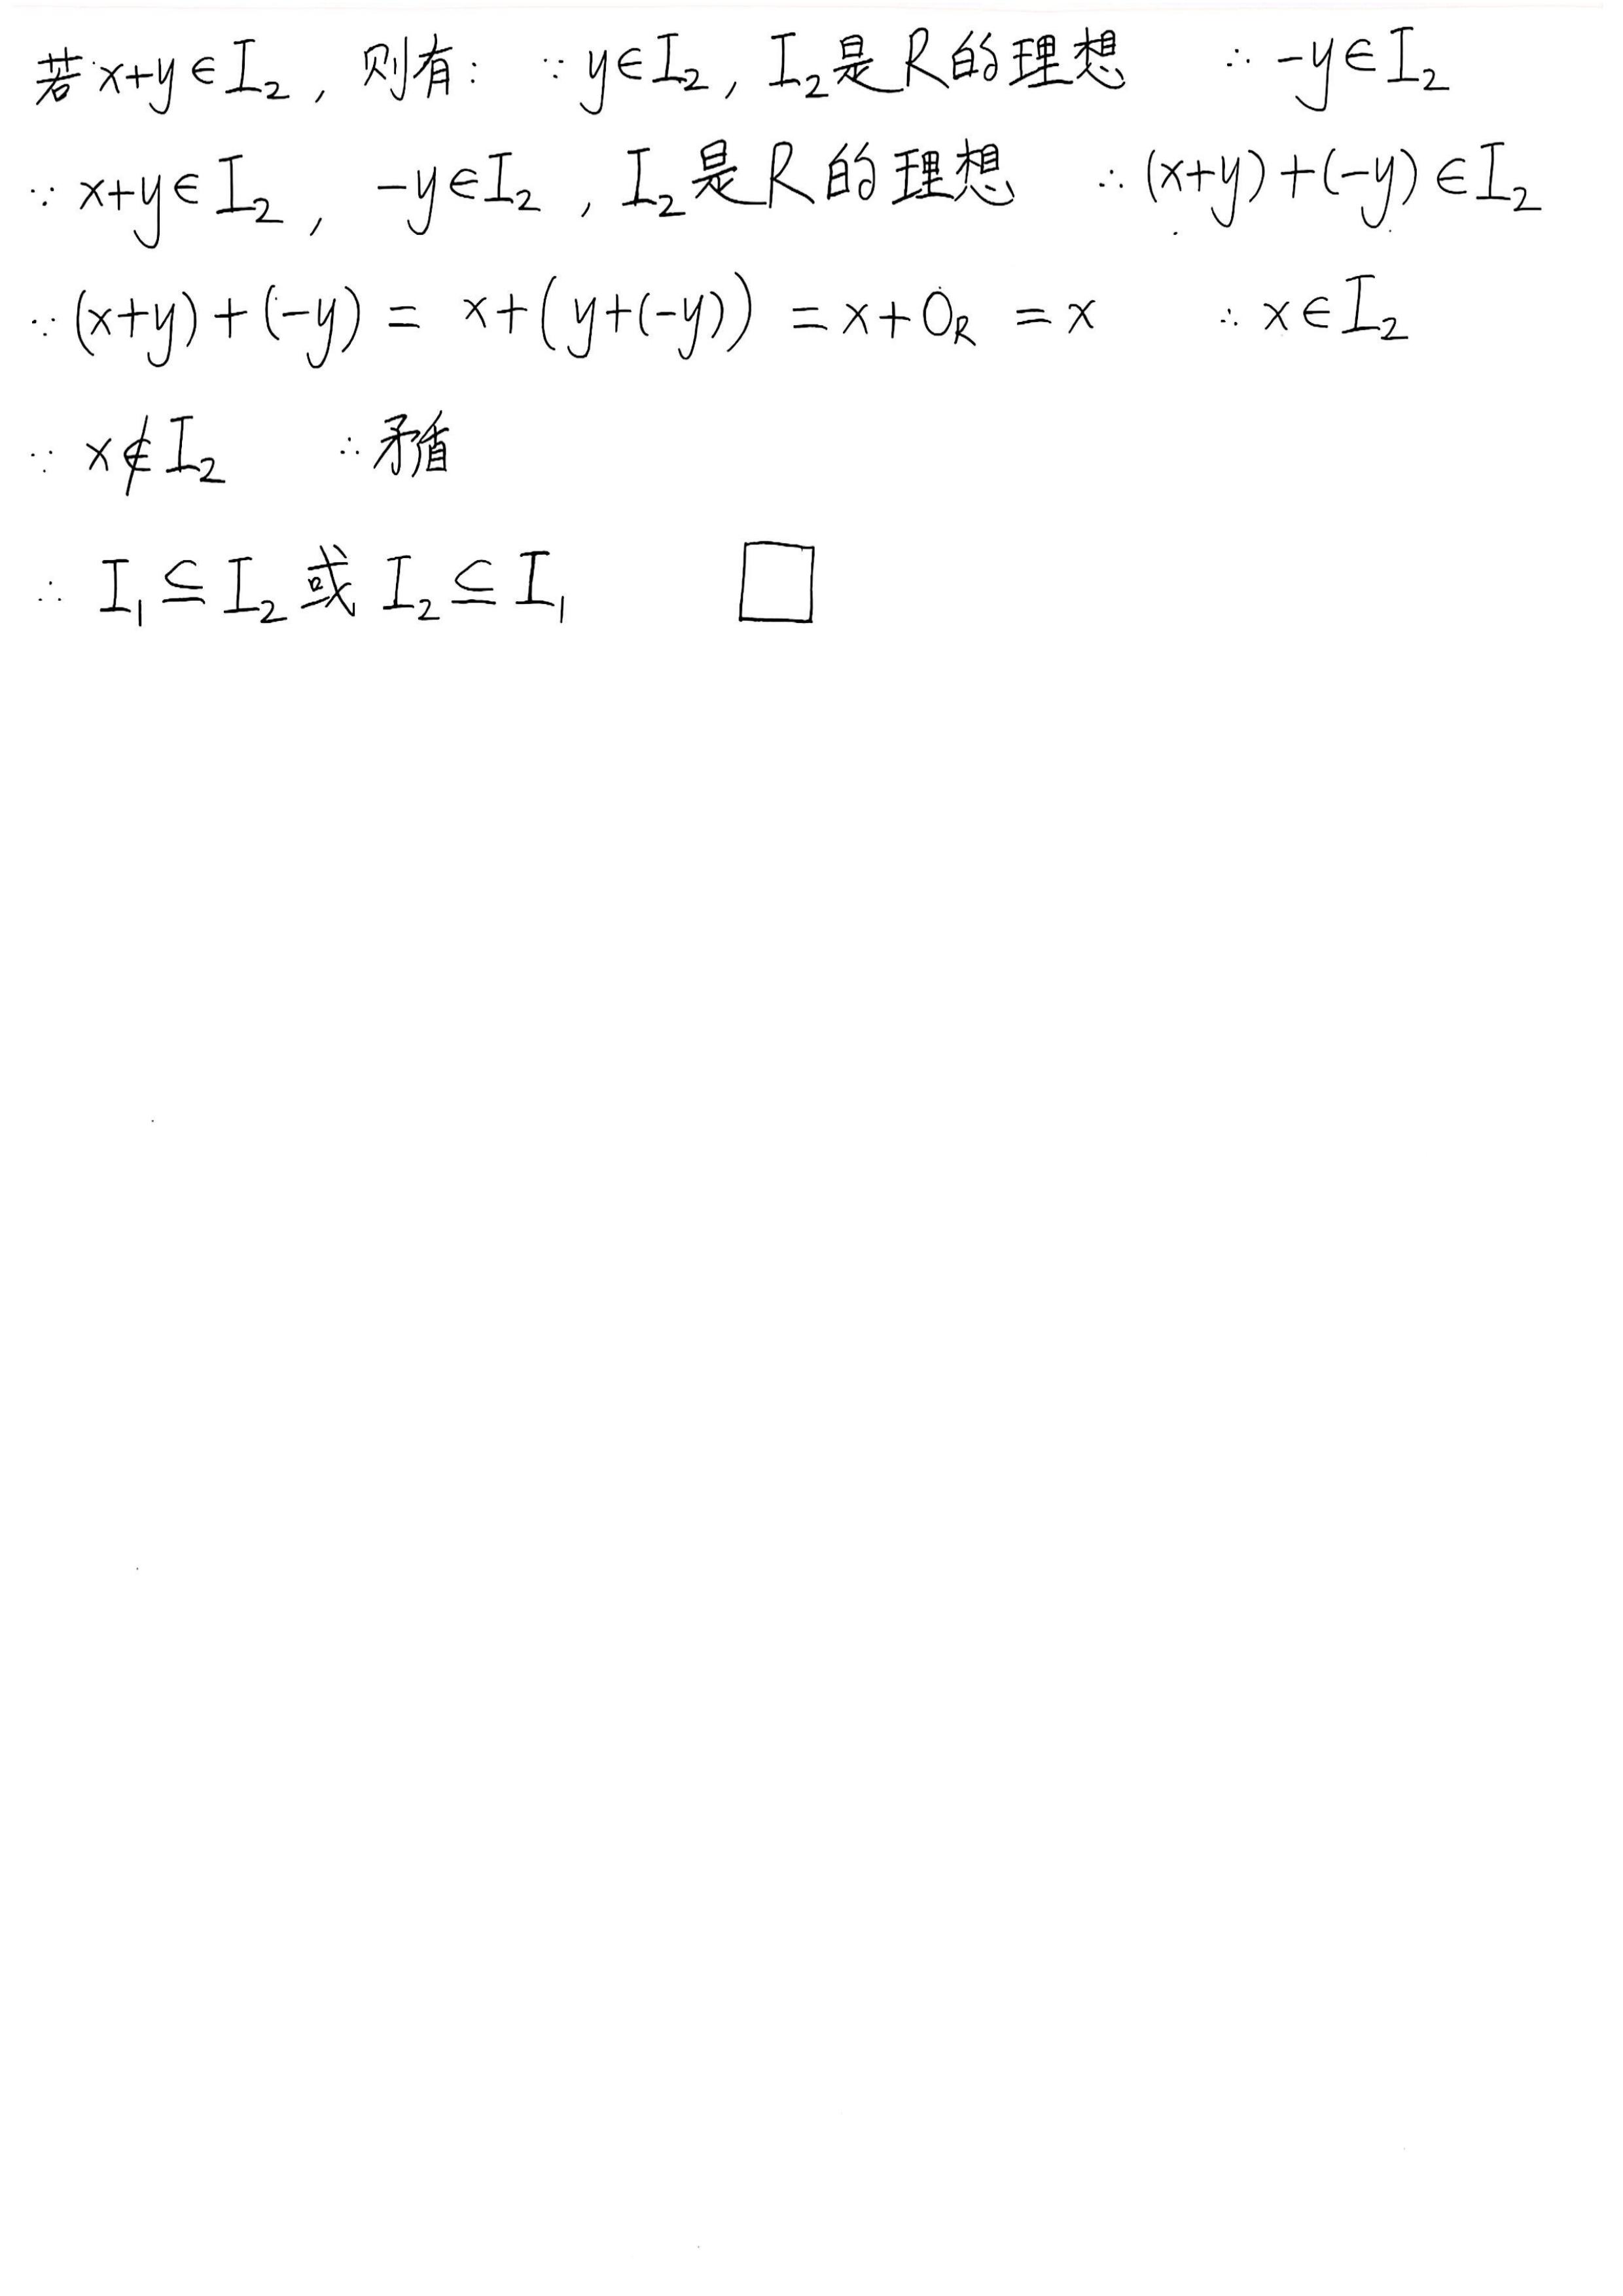 若x+y∈I₂, 则有: ∵y∈I₂, I₂是R的理想 ∴-y∈I₂
∵x+y∈I₂, -y∈I₂, I₂是R的理想 ∴(x+y)+(-y)∈I₂
∵(x+y)+(-y)= x+(y+(-y))=x+0_R=x ∴x∈I₂
∵x∉I₂ ∴矛盾
∴I₁⊆I₂或I₂⊆I₁ □